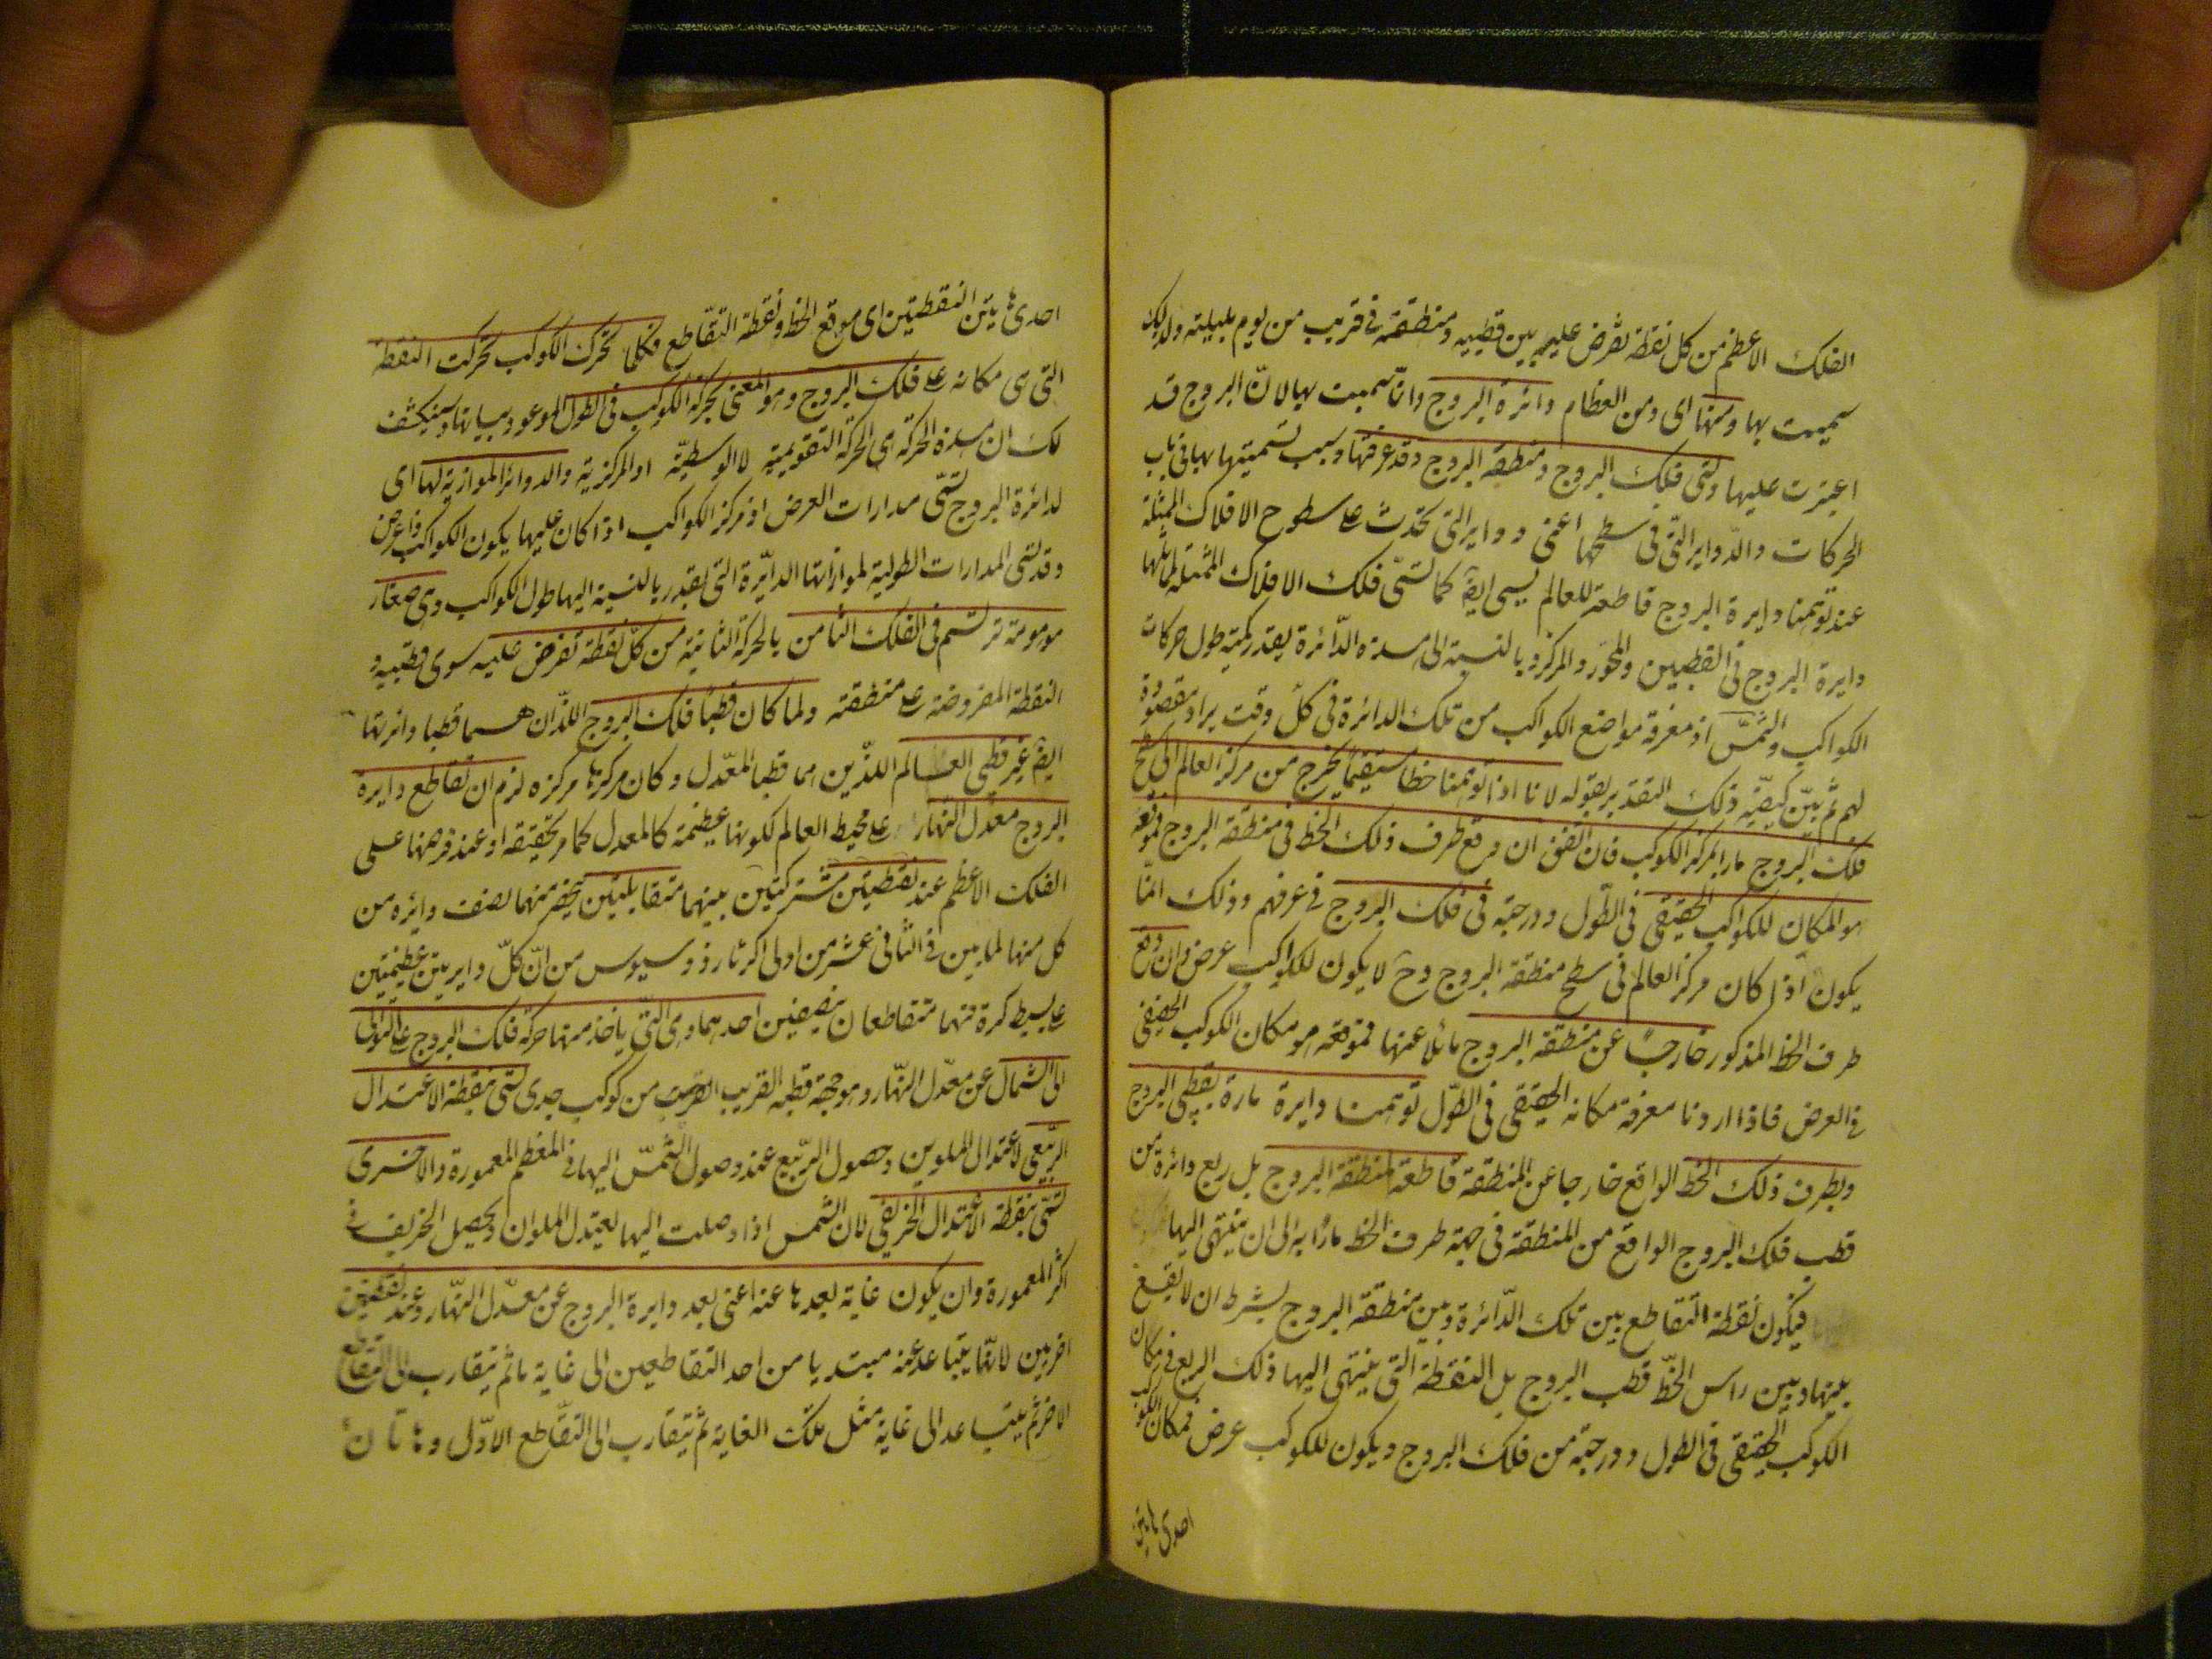 الفلك الاعظم من كل نقطة تفرض عليه بين قطبيه ومنطقته في قريب من يوم بليلته ولذلك
سميت بها ومنها اى ومن العظام دائرة البروج وانما سميت بها لانّ البروج قد
اعتبرت عليها وتسمى فلك البروج ومنطقة البروج وقد عرفتها وسبب تسميتها بها في باب
الحركات والدّواير التى في سطحها اعنى دواير التى تحدث على سطوح الافلاك الممثلة
عند توهمنا دايرة البروج قاطعة للعالم يسمى ايضا كما تسمّى فلك الافلاك الممثلة لمماثلتها
دايرة البروج في القطبين والمحور والمركز وبالنسبة الى هذه الدّائرة يقدر كمية طول حركات
الكواكب والشمس اذ معرفة مواضع الكواكب من تلك الدائرة في كلّ وقت يراد مقصودة
لهم ثم بيّن كيفيّة ذلك التقدير بقوله لانا اذا توهمنا خطا مستقيما يخرج من مركز العالم الى سطح
فلك البروج مارا بمركز الكوكب فان اتفق ان وقع طرف ذلك الخط في منطقة البروج فموقعه
هو المكان للكوكب الحقيقى في الطّول ودرجته في فلك البروج في عرفهم وذلك انما
يكون اذا كان مركز العالم في سطح منطقة البروج وح لا يكون للكواكب عرض وان وقع
طرف الخط المذكور خارجًا عن منطقة البروج مائلا عنها فموقعه هو مكان الكوكب الحقيقى
في العرض فاذا اردنا معرفة مكانه الحقيقى في الطّول توهمنا دايرة مارة بقطبى البروج
وبطرف ذلك الخط الواقع خارجا عن المنطقة قاطعة لمنطقة البروج بل ربع دائرة من
قطب فلك البروج الواقع من المنطقة في جهة طرف الخط مارًا به الى ان ينتهى اليها
فيكون نقطة التقاطع بين تلك الدّائرة وبين منطقة البروج بشرط ان لا يقع
بينها وبين راس الخطّ قطب البروج بل النقطة التى ينتهى اليها ذلك الربع هى مكان
الكوكب الحقيقى في الطول ودرجته من فلك البروج ويكون للكوكب عرض فمكان الكوكب
احدى هاتين
احدى هاتين النقطتين اى موقع الخط ونقطة التّقاطع فكلما تحرك الكوكب تحركت النقطة
التى هى مكانه على فلك البروج وهو المعنى بحركة الكوكب في الطول الموعود ببيانها وينكشف
لك ان هذه الحركة هى الحركة التقويمية لا الوسطيّة او المركزية والدوائر الموازية لها اى
لدائرة البروج تسمّى مدارات العرض اذ مركز الكواكب اذا كان عليها يكون الكواكب ذا عرض
وقد تسمى المدارات الطولية لموازاتها الدائرة التى يقدر بالنسبة اليها طول الكواكب وهى صغار
موهومة ترتسم في الفلك الثامن بالحركة الثانية من كلّ نقطة تفرض عليه سوى قطبيه و
النقطة المفروضة على منطقته ولما كان قطبا فلك البروج اللذان هما قطبا دائرتها
ايضا غير قطبى العالم اللذين هما قطبا المعدّل وكان مركزها مركزه لزم ان تقاطع دايرة
البروج معدّل النّهار على محيط العالم لكونها عظيمة كالمعدل كما مر تحقيقه او عند فرضها على
الفلك الاعظم عند نقطتين مشتركتين بينهما متقابلتين يحيز منهما نصف دائرة من
كل منها لما بين في الثانى عشر من اولى اكر ثاوذوسيوس من انّ كلّ دايرتين عظيمتين
على بسيط كرة فهما متقاطعان بنصفين احديهما وهى التى ياخذ منها حركة فلك البروج على التوالى
الى الشمال عن معدّل النّهار وهو جهة قطبه القريب من كوكب جدى تسمى نقطة الاعتدال
الربيعى لاعتدال الملوين وحصول الرّبيع عند وصول الشّمس اليها في المعظم المعمورة والاخرى
تسمّى نقطة الاعتدال الخريفى لان الشمس اذا وصلت اليها يعتدل الملوان ويحصل الخريف في
اكثر المعمورة وان يكون غاية بعدها عنه اعنى بعد دايرة البروج عن معدّل النّهار وعند نقطتين
اخريين لانها يتباعد عنه مبتديا من احد التقاطعين الى غاية ما ثم يتقارب الى التقاطع
الاخر ثم يتباعد الى غاية مثل تلك الغاية ثم يتقارب الى التقّاطع الاوّل وهاتان